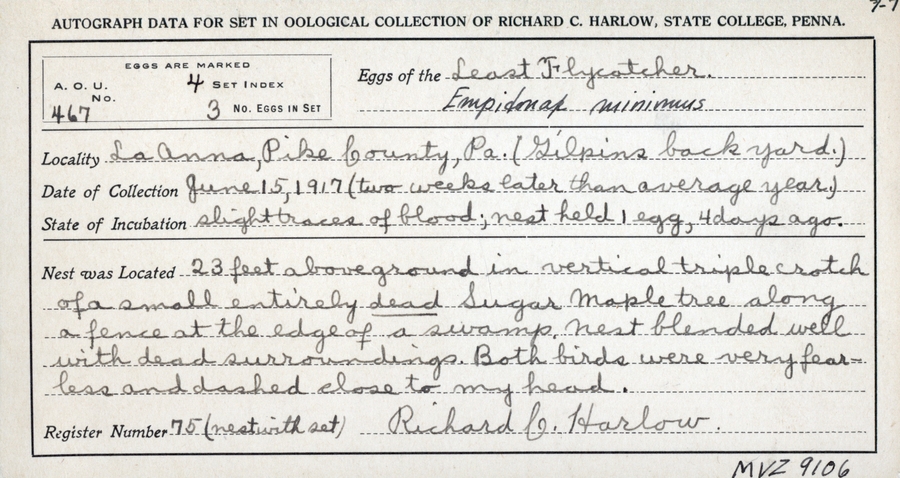 AUTOGRAPH DATA FOR SET IN OOLOGICAL COLLECTION OF RICHARD C. HARLOW, STATE COLLEGE, PENNA.
EGGS ARE MARKED
A. O. U. No. 467
4 SET INDEX
3 NO. EGGS IN SET
Eggs of the Least Flycatcher.
Empidonax minimus
Locality La Anna, Pike County, Pa. (Gilpins back yard.)
Date of Collection June 15, 1917 (two weeks later than average year.)
State of Incubation slight traces of blood; nest held 1 egg, 4 days ago.
Nest was Located 23 feet above ground in vertical triple crotch
of a small entirely dead Sugar Maple tree along
a fence at the edge of a swamp. Nest blended well
with dead surroundings. Both birds were very fear-
less and dashed close to my head.
Register Number 75 (nest with set) Richard C. Harlow.
MVZ 9106